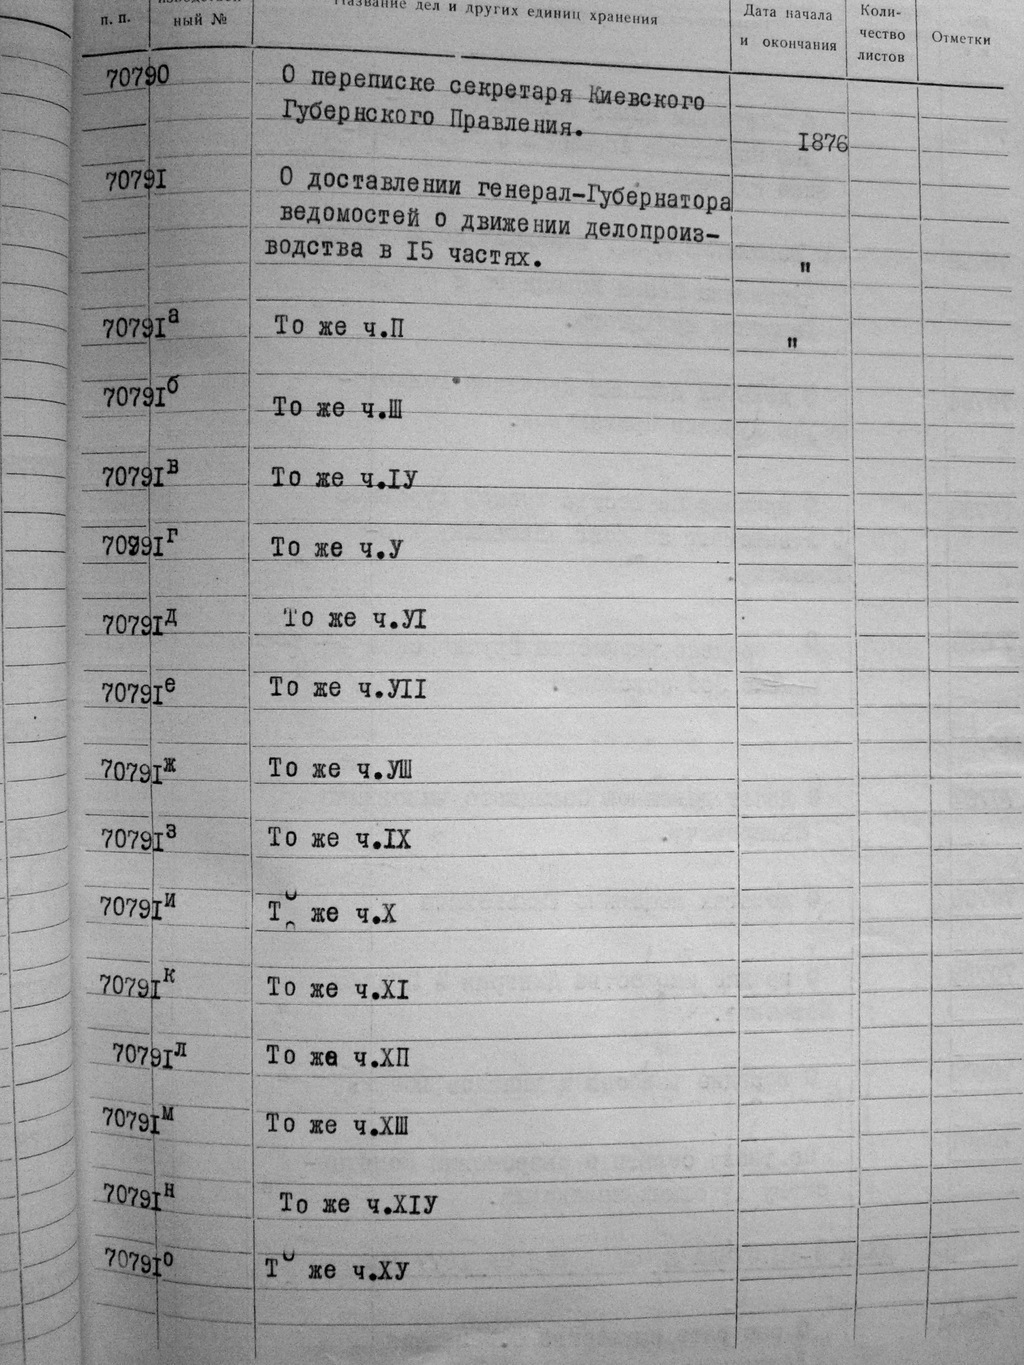 п. п.
ный №
Название дел и других единиц хранения
Дата начала
и окончания
Коли-
чество
листов
Отметки
70790 О переписке секретаря Киевского
Губернского Правления. 1876
70791 О доставлении генерал-Губернатора
ведомостей о движении делопроиз-
водства в 15 частях. "
70791а То же ч.П "
70791б То же ч.Ш
70791в То же ч.IУ
70791г То же ч.У
70791д То же ч.УI
70791е То же ч.УII
70791ж То же ч.УШ
70791з То же ч.IX
70791и То же ч.Х
70791к То же ч.ХI
70791л То же ч.ХП
70791м То же ч.ХШ
70791н То же ч.ХIУ
70791о То же ч.ХУ